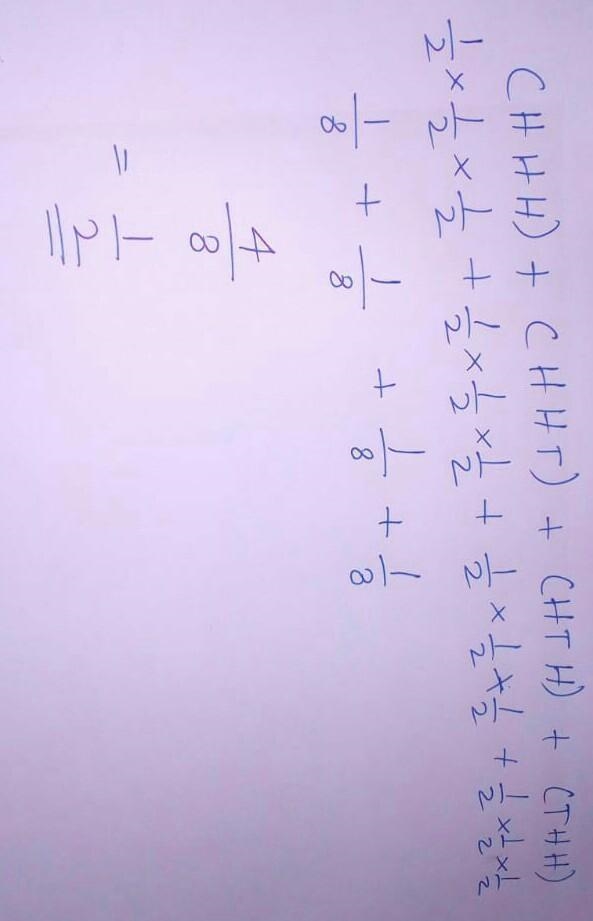 (HHH) + (HHT) + (HTH) + (THH)
1/2 × 1/2 × 1/2 + 1/2 × 1/2 × 1/2 + 1/2 × 1/2 × 1/2 + 1/2 × 1/2 × 1/2
1/8 + 1/8 + 1/8 + 1/8
4/8
= 1/2